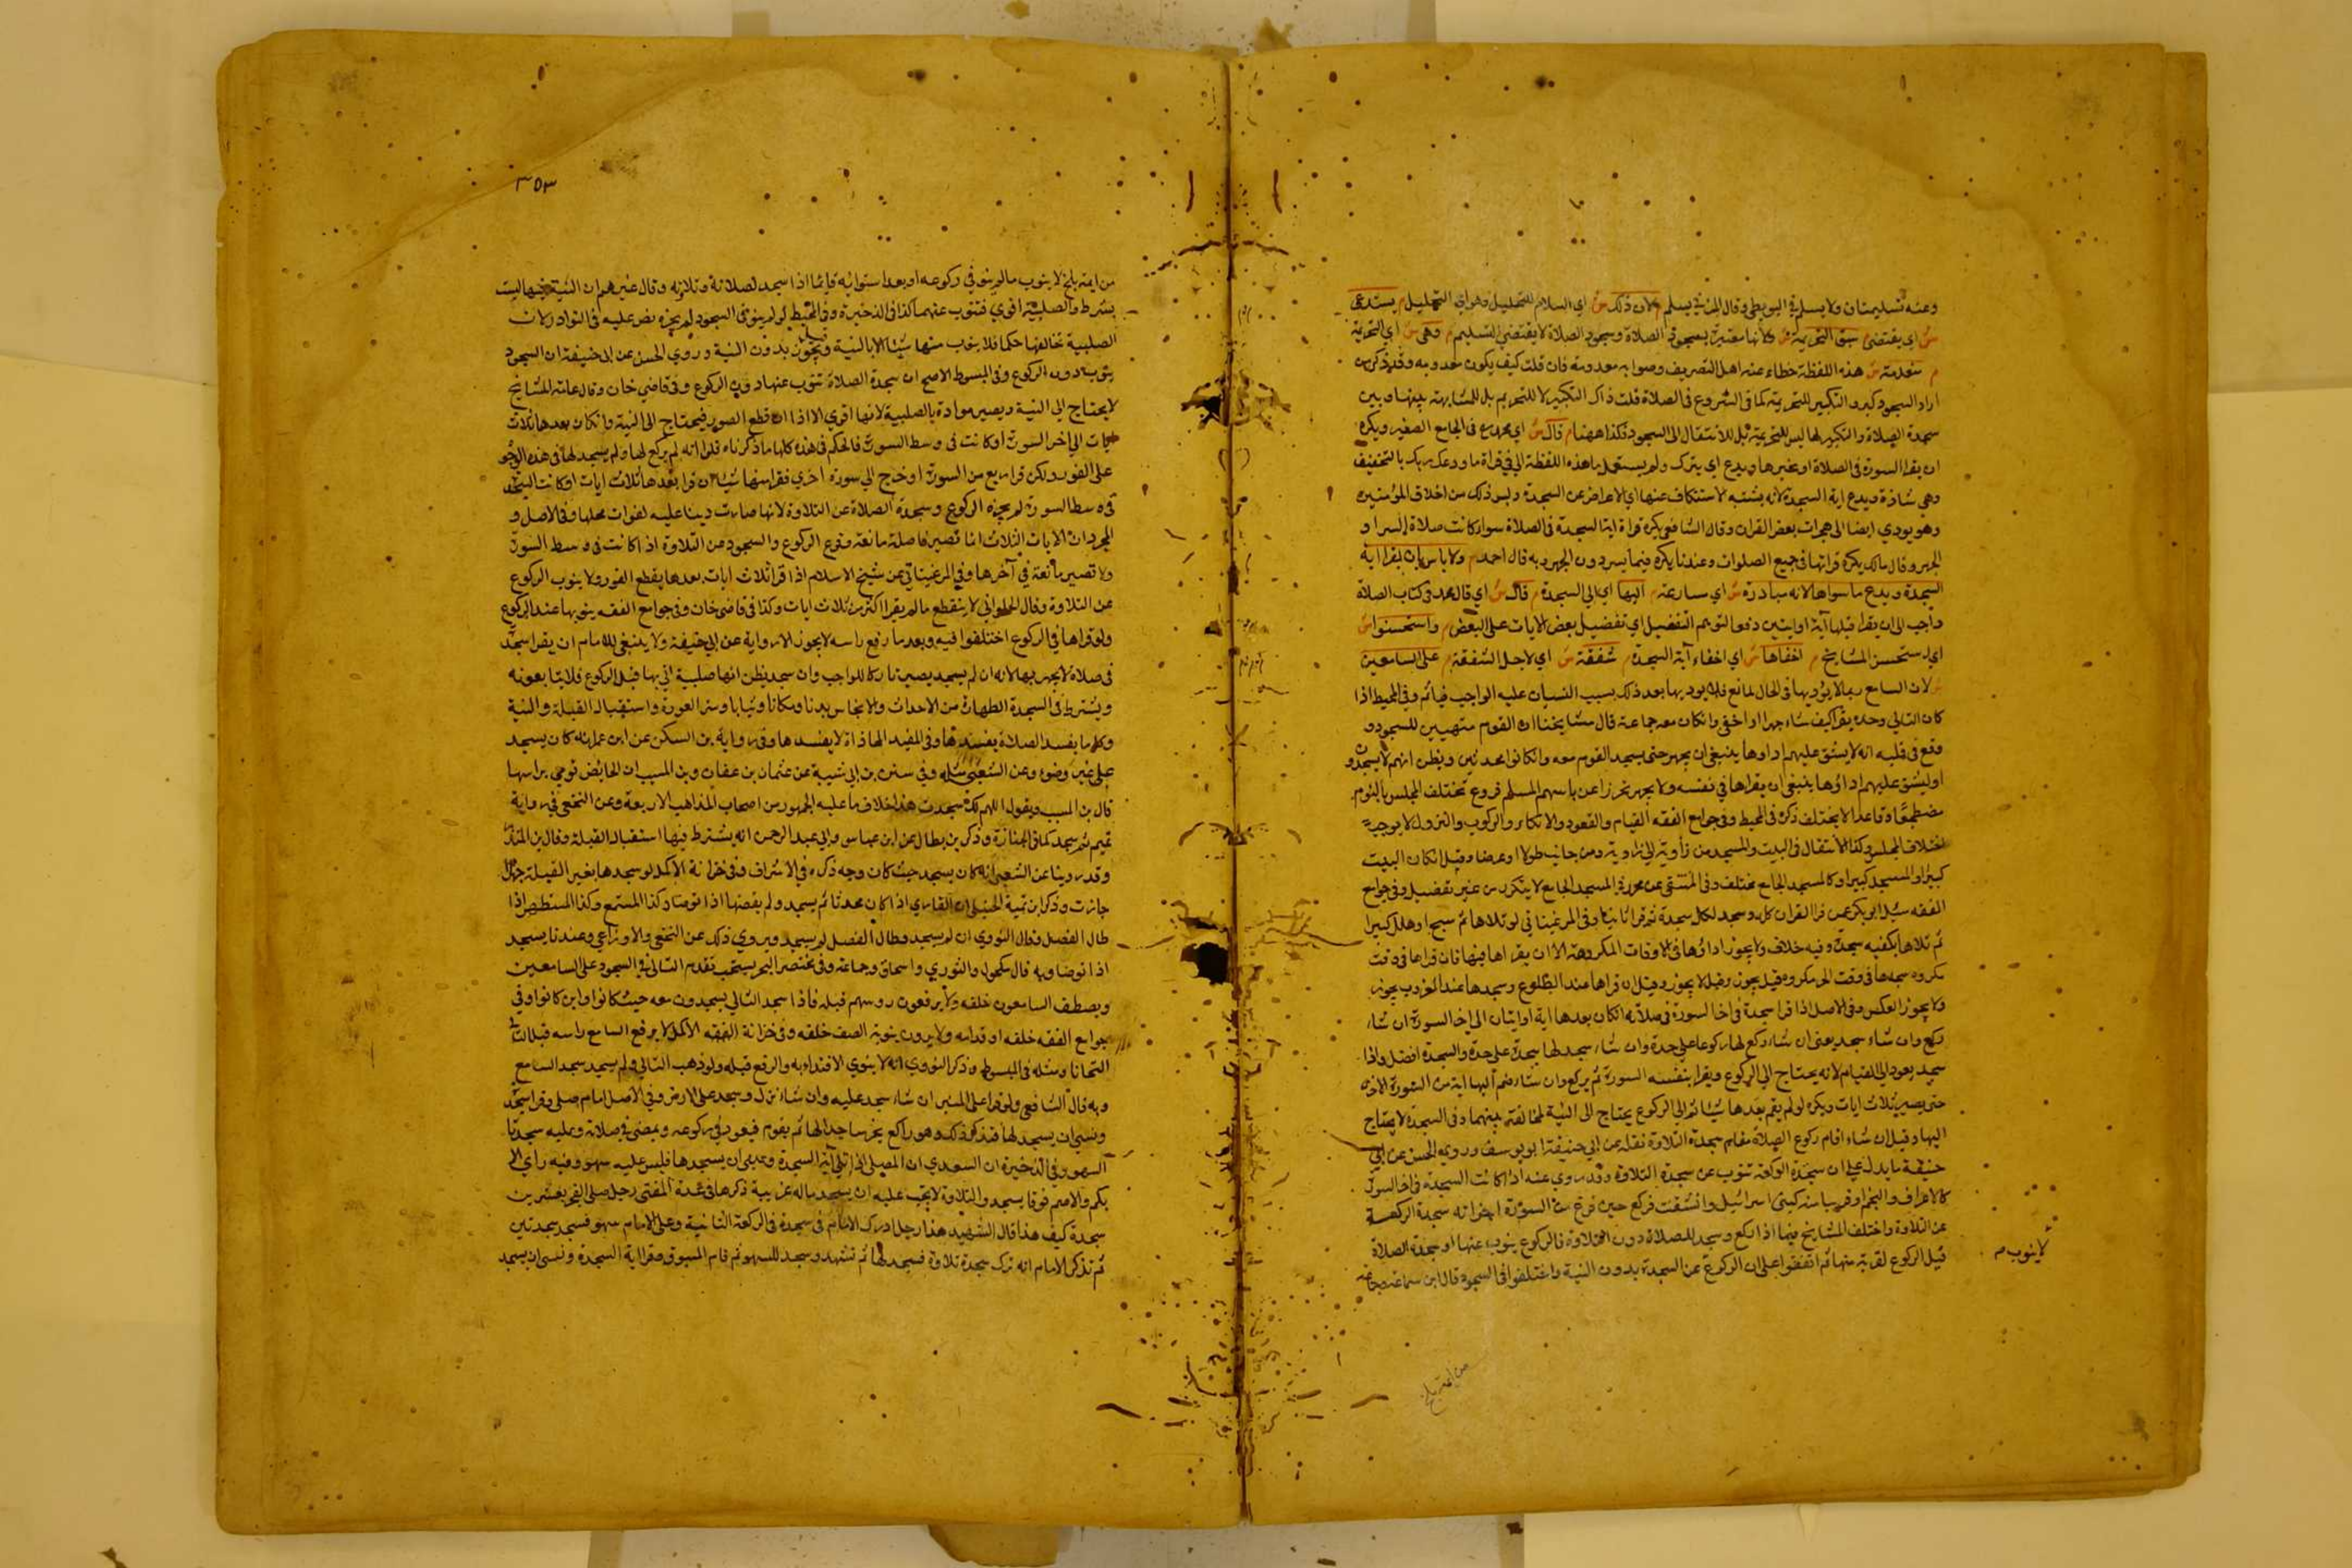 وعنه تسليمتان ولا يسلم في البويطى وقال المزني يسلم م لان ذلك ش اي السلام للتحليل وهو اي التحليل م يستدعى
ش اي يقتضى سبق التحريمة ش كانها معتبرة بسجود الصلاة وسجود الصلاة لا يقتضي التسليم م وهى ش اي التحريمة
م منعدمة ش هذه اللفظة خطاء عند اهل التصريف وصوابه معدومة فان قلت كيف يكون معدومة وقد ذكر من
اراد السجود كبر والتكبير للتحريمة كما فى الشروع فى الصلاة قلت ذاك التكبير لا للتحريم بل للمشابهة بينها وبين
سجدة الصلاة والتكبير لها ليس للتحريمة بل للانتقال الى السجود فكذا ههنا م قال ش اي محمد م فى الجامع الصغير ويكره
ان يقرا السورة فى الصلاة او غيرها ويدع اي يترك ولم يستعمل ماهذه اللفظة الى فى قراة ما ودعك ربك بالتخفيف
وهي شاذة ويدع اية السجدة لانه يشبه الاستنكاف عنها اي الاعراض عن السجدة وليس ذلك من اخلاق المؤمنين
وهو يودي ايضا الى هجران بعض القران وقال الشافعى يكره قراة اية السجدة فى الصلاة سواء كانت صلاة السر او
الجهر وقال مالك يكره قراتها فى جميع الصلوات وعندنا يكره فيما يسر دون الجهر وبه قال احمد م ولا باس بان يقرا اية
السجدة ويدع ما سواها لانه مبادرة ش اي مسارعة م اليها اي الى السجدة م قال ش اي قال محمد فى كتاب الصلاة
واحب الى ان يقرا قبلها آية او ايتين دفعا لتوهم التفضيل اي تفضيل بعض الايات على البعض م واستحسنوا ش
اي استحسن المشايخ م اخفاها ش اي اخفاء آية السجدة م شفقة ش اي لاجل الشفقة م على السامعين
ش لان السامع ربما لا يؤديها فى الحال لمانع فلا يوديها بعد ذلك بسبب النسيان عليه الواجب فياثم وفى المحيط اذا
كان التالي وحده يقرا كيف شاء جهرا او اخفى وان كان معه جماعة قال مشايخنا ان القوم متهيين للسجود و
وقع فى قلبه انه لا يشق عليهم اداوها ينبغى ان يجهر حتى يسجد القوم معه وان كانوا محدثين ويظن انهم لا يسجدون
او يشق عليهم اداؤها ينبغى ان يقراها في نفسه ولا يجهر تحرزا عن تاثيم المسلم فروع تختلف المجلس بالنوم
مضطجعا او قاعدا لا يختلف ذكره فى المحيط وفى جوامع الفقه القيام والقعود والاتكاء والركوب والنزول لا يوجب
اختلاف المجلس وكذا الانتقال فى البيت والمسجد من زاوية الى زاوية ومن جانب طولا او عرضا وقيل ان كان البيت
كبيرا او المسجد كبيرا وكالمسجد الجامع مختلف وفى المنتقى عن محمد فى المسجد الجامع لا يتكرر من غير تفصيل وفى جوامع
الفقه سئل ابو بكر عمن قرا القران كله وسجد لكل سجدة ثم قرا ثانيا وفى المرغيناني لو تلاها ثم سبح او هلل كبيرا
ثم تلاها يكفيه سجدة وفيه خلاف ولا يجوز اداؤها فى الاوقات المكروهة الا ان يقراها فيها فان قراها فى وقت
مكروه سجدها فى وقت اخر مكروه قيل يجوز وقيل لا يجوز وقيل ان قراها عند الطلوع وسجدها عند الغروب يجوز
ولا يجوز العكس وفى الاصل اذا قرا سجدة فى اخر السورة فى صلاته ان كان بعدها اية او ايتان الى اخر السورة ان شاء
ركع وان شاء سجد يعنى ان شاء ركع لها ركوعا على حدة وان شاء سجد لها سجدة على حدة والسجدة افضل واذا
سجد يعود الى القيام لانه يحتاج الى الركوع ويقرا بنفسه السورة ثم يركع وان شاء ضم اليها اية من السورة الاخرى
حتى يصير ثلاث ايات ويكره لو لم يقم بعدها شيئا ثم الى الركوع يحتاج الى النية لمخالفة بينهما وفى السجدة لا يحتاج
اليها وقيل ان شاء اقام ركوع الصلاة مقام سجدة التلاوة نقله عن ابي حنيفة ابو يوسف وروى الحسن عن ابي
حنيفة ما يدل على ان سجدة الركعة تنوب عن سجدة التلاوة وقد روي عنه اذا كانت السجدة فى اخر السورة
كالاعراف والنجم او قريبا منه كبنى اسرائيل وانشقت فركع حين فرغ من السورة اجزاته سجدة الركعة
عن التلاوة واختلف المشايخ فيما اذا ركع وسجد للصلاة دون التلاوة فالركوع ينوب عنها او سجدة الصلاة
قبل الركوع لقربه منها ثم اتفقوا على ان الركوع عن السجدة بدون النية واختلفوا فى السجود قال ابن سماعة وجماعة
لا ينوب م
من ايمة بلخ
٣٥٣
من ايمة بلخ لا ينوب ما لم ينو في ركوعه او بعد استوائه قايما اذا سجد لصلاته وتلاوته وقال غيرهم ان النية فيها ليست
بشرط والصلبية اقوي فتنوب عنهما كذا فى الذخيرة وفى المحيط لو لم ينو فى السجود لم يجزه نص عليه فى النوادر لان
الصلبية تخالفها حكما فلا ينوب منها شيئا الا بالنية وقيل يجوز بدون النية وروي الحسن عن ابى حنيفة ان السجود
ينوب دون الركوع وفى المبسوط الاصح ان سجدة الصلاة تنوب عنها دون الركوع وفى قاضي خان وقال عامة المشايخ
لا يحتاج الى النية ويصير موادة بالصلبية لانها اقوي الا اذا قطع الصور فيحتاج الى النية وان كان بعدها ثلاث
ايات الى اخر السورة او كانت فى وسط السورة فالحكم فى هذه كلها ما ذكرناه فلو انه لم يركع لها ولم يسجد لها فى هذه الوجوه
على الفور ولكن قرا ما بقى من السورة او خرج الى سورة اخري فقرا منها شيئا ان قرا بعدها ثلاث ايات او كانت السجدة
فى وسط السورة لم يجزه الركوع وسجدة الصلاة عن التلاوة لانها صارت دينا عليه لفوات محلها وفى الاصل و
المجرد ان الايات الثلاث انما تصير فاصلة مانعة وقوع الركوع والسجود من التلاوة اذا كانت فى وسط السورة
ولا تصير مانعة فى آخرها وفى المرغيناني عن شيخ الاسلام اذا قرا ثلاث ايات بعدها يقطع الفور ولا ينوب الركوع
عن التلاوة وقال الحلواني لا ينقطع ما لم يقرا اكثر من ثلاث ايات وكذا فى قاضى خان وفى جوامع الفقه ينوبها عند الركوع
ولو قراها فى الركوع اختلفوا فيه وبعد ما رفع راسه لا يجوز الا رواية عن ابي حنيفة ولا ينبغى للامام ان يقرا سجدة
فى صلاة لا يجهر بها لانه ان لم يسجد يصير تاركا للواجب وان سجد يظن انها صلبية اتي بها قبل الركوع فلا يتابعونه
ويشترط فى السجدة الطهارة من الاحداث والانجاس بدنا ومكانا وثيابا وستر العورة واستقبال القبلة والنية
وكل ما يفسد الصلاة يفسدها وفى المفيد المحاذاة لا يفسدها وفى رواية بن السكن عن ابن عمر انه كان يسجد
على غير وضوء وعن الشعبى مثله وفي سنن بن ابي شيبة عن عثمان بن عفان وبن المسيب ان الحايض تومي براسها
قال بن المسيب ويقول اللهم لك سجدت هذا خلاف ما عليه الجمهور من اصحاب المذاهب الاربعة وعن النخعى فى رواية
تميم ثم سجد كما فى الجنازة وذكر بن بطال عن ابن عباس وابي عبد الرحمن انه يشترط فيها استقبال القبلة وقال بن المنذر
وقد روينا عن الشعبى انه كان يسجد حيث كان وجه ذكره في الاشراف وفى خزانة الاكمل لو سجدها بغير القبلة جهلا
جازت وذكر ابن تيمية الحنبلى ان القاري اذا كان محدثا ثم يسجد ولم يقضها اذا توضا وكذا المستمع وكذا المستطهر اذا
طال الفصل وقال النووي ان لم يسجد وطال الفصل لم يسجد ويروي ذلك عن النخعى والاوزاعي وعندنا يسجد
اذا توضا وبه قال مكحول والثوري واسحاق وجماعة وفى مختصر البحر يستحب تقدم التالى فى السجود على السامعين
ويصطف السامعون خلفه ولا يرفعون روسهم قبله فاذا سجد التالي يسجدون معه حيث كانوا واين كانوا وفى
جوامع الفقه خلفه او قدامه ولا يرون ينوبة الصف خلفه وفى خزانة الفقه الاكمل لا يرفع السامع راسه قبل التالى
التحانا ومثله فى المبسوط وذكر النووي انه لا ينوي الاقتداء به والرفع قبله ولو ذهب التالي ولم يسجد سجد السامع
وبه قال الشافعى ولو قرا على المنبر ان شاء سجد عليه وان شاء نزل وسجد على الارض وفي الاصل امام صلى وقرا سجدة
ونسي ان يسجد لها فتذكر ذلك وهو راكع يخر ساجدا لها ثم يقوم فيعود فى ركوعه ويمضى فى صلاته وعليه سجدتا
السهو وفى الذخيرة ان السعدي ان المصلى اذا تلى آية السجدة ونسي ان يسجدها فليس عليه سهو وفيه راي الا
بكم والاصم فوقا يسجد والتلاوة لا يجب عليه ان يسجد ماله غريبة ذكرها فى عدة المفتى رجل صلى الفجر بعشرين
سجدة كيف هذا قال الشهيد هذا رجل ادرك الامام فى سجدة فى الركعة الثانية وعلى الامام سهو فسجد سجدتين
ثم تذكر الامام انه ترك سجدة تلاوة فسجد لها ثم تشهد وسجد للسهو ثم قام المسبوق وقرا اية السجدة ونسى ان يسجد